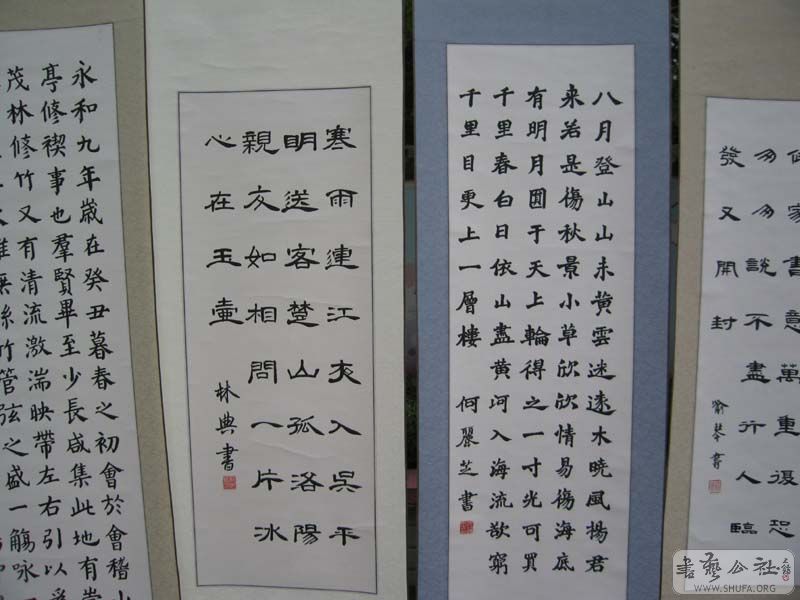 家書意萬重復恐
匆匆說不盡行人臨
發又開封
八月登山山未黄雲迷遠木曉風揚君
来若是傷秋景小草欣欣情易傷海底
有明月圓于天上輪得之一寸光可買
千里春白日依山盡黄河入海流欲窮
千里目更上一層樓 何麗芝書
寒雨連江夜入吳平
明送客楚山孤洛陽
親友如相問一片冰
心在玉壺
林典書
永和九年歲在癸丑暮春之初會於會稽山
亭修禊事也羣賢畢至少長咸集此地有崇
茂林修竹又有清流激湍映帶左右引以為
雖無絲竹管弦之盛一觴咏
書藝公社
WWW.SHUFA.ORG